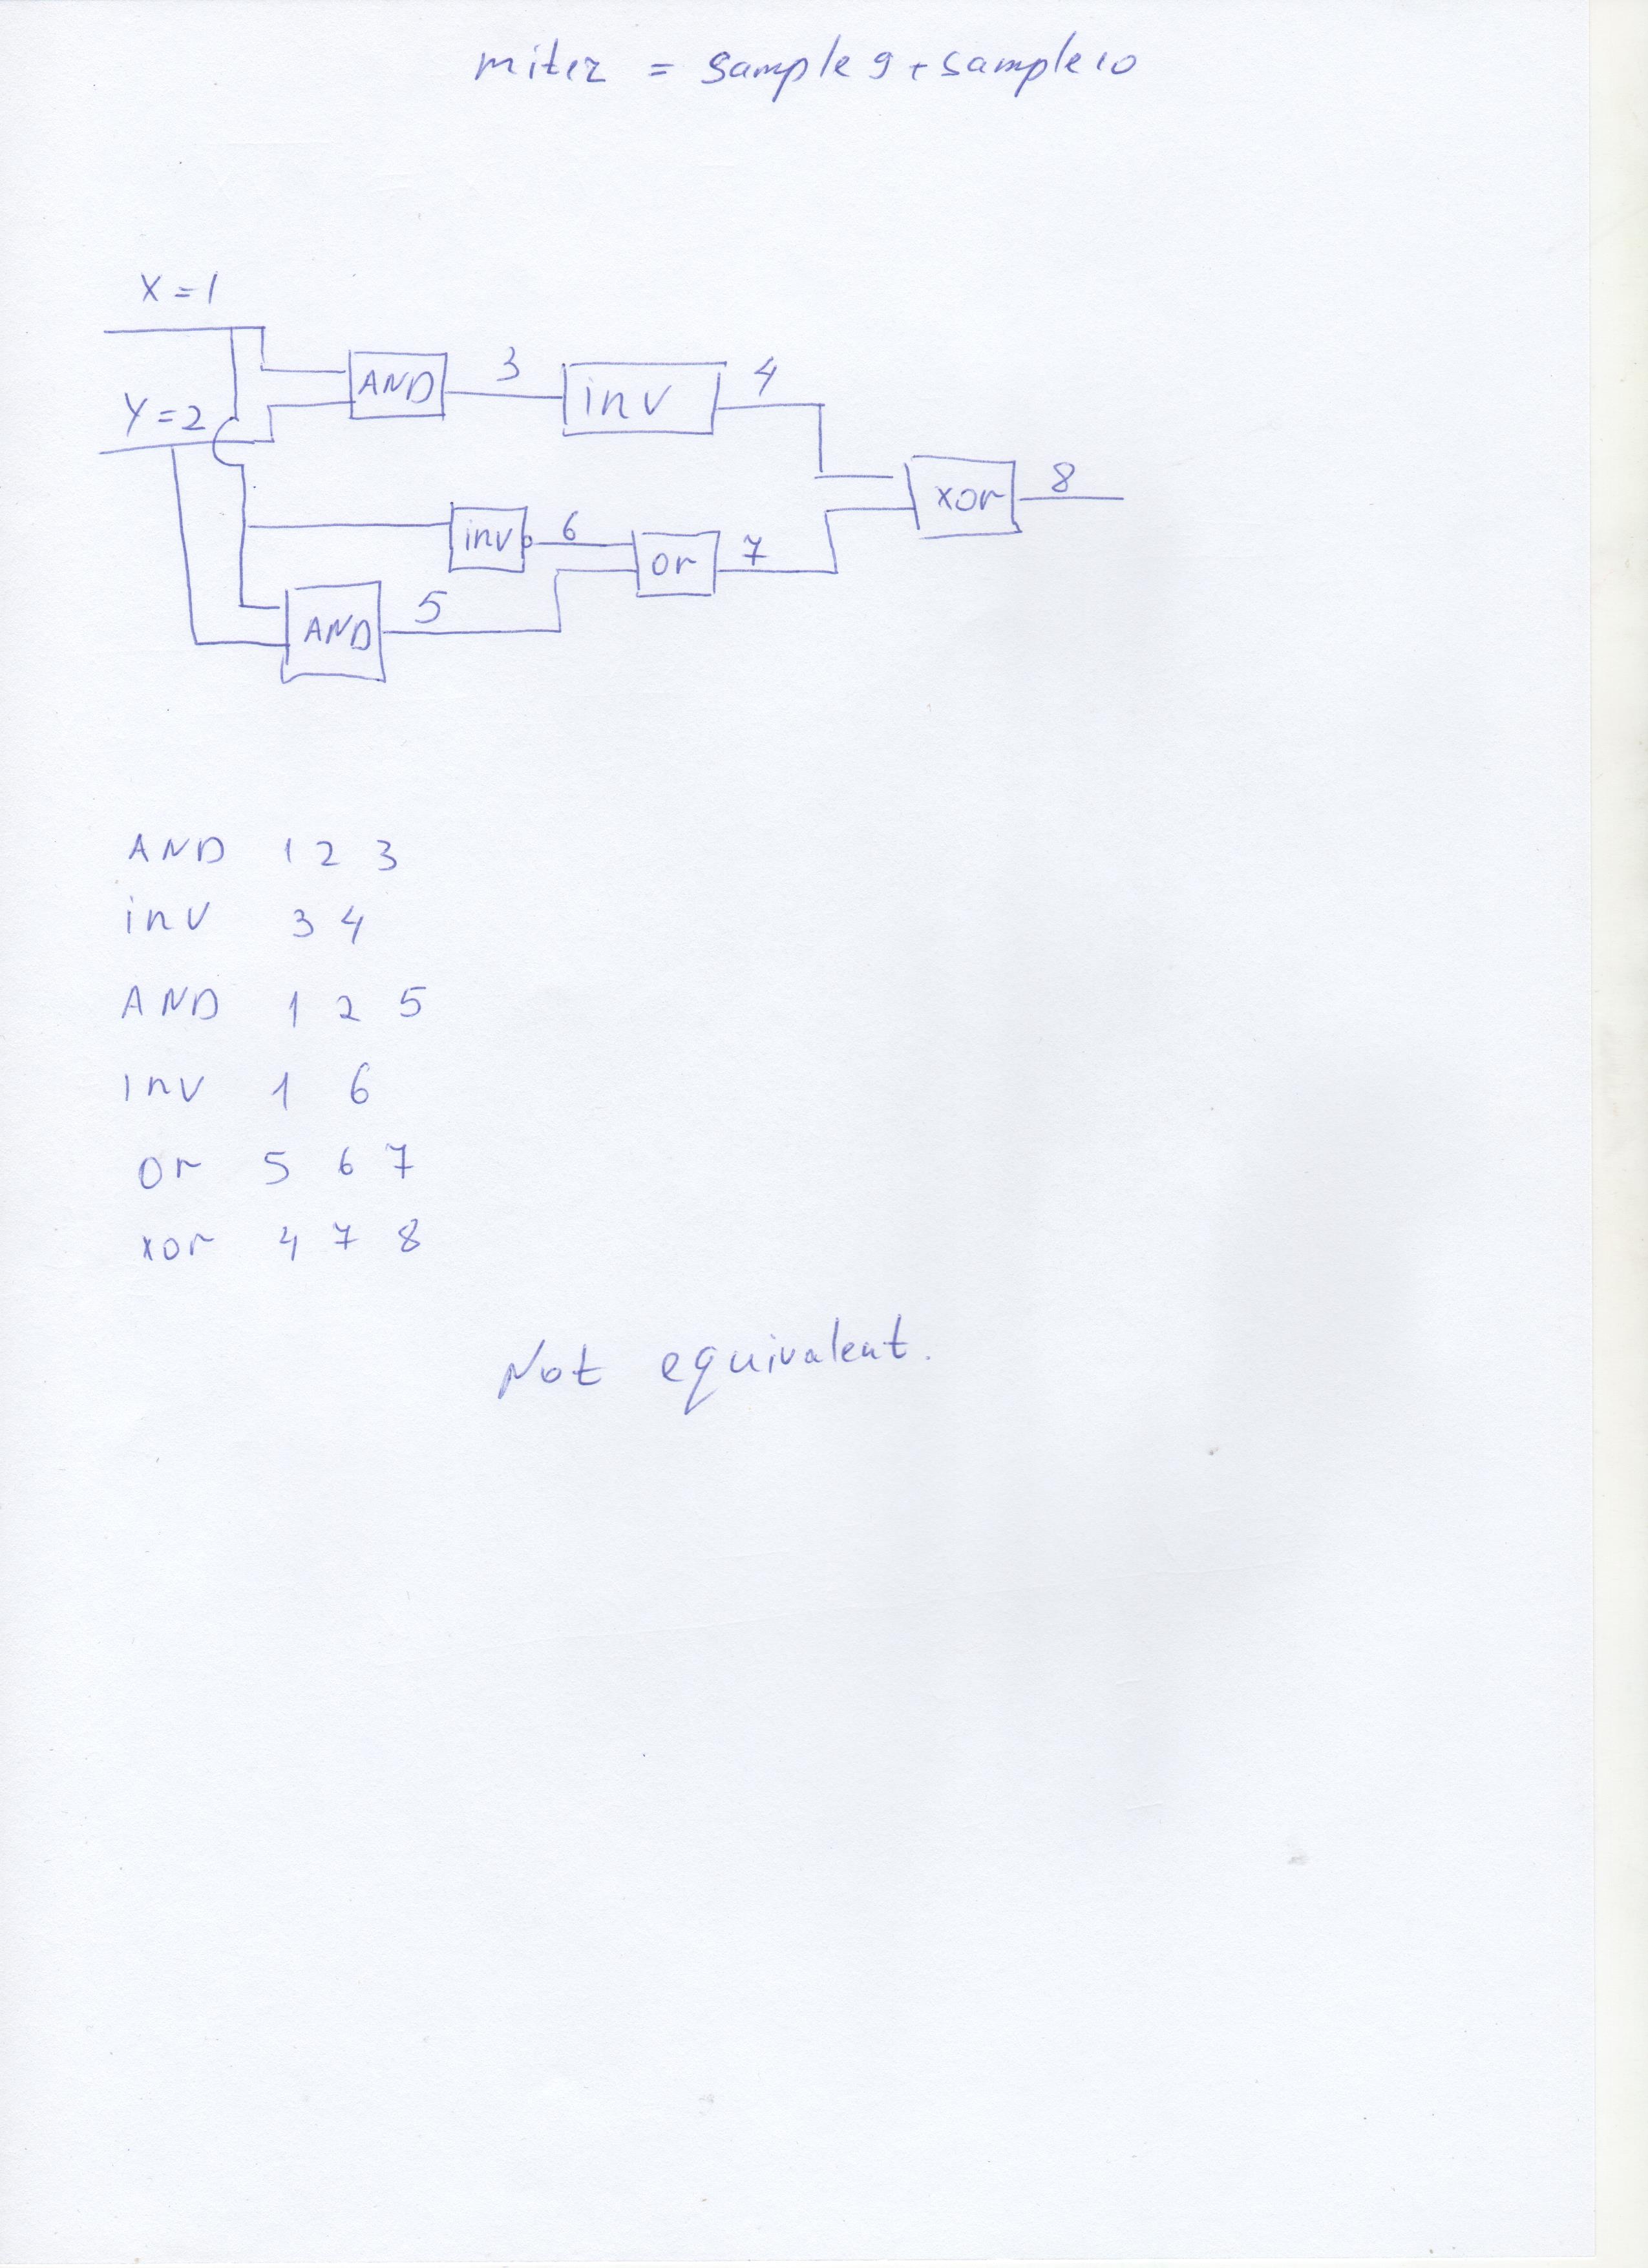 miter = sample 9 + sample 10
X = 1
Y = 2
AND 3 inv 4
xor 8
inv 6 or 7
AND 5
AND 1 2 3
inv 3 4
AND 1 2 5
inv 1 6
or 5 6 7
xor 4 7 8
Not equivalent.